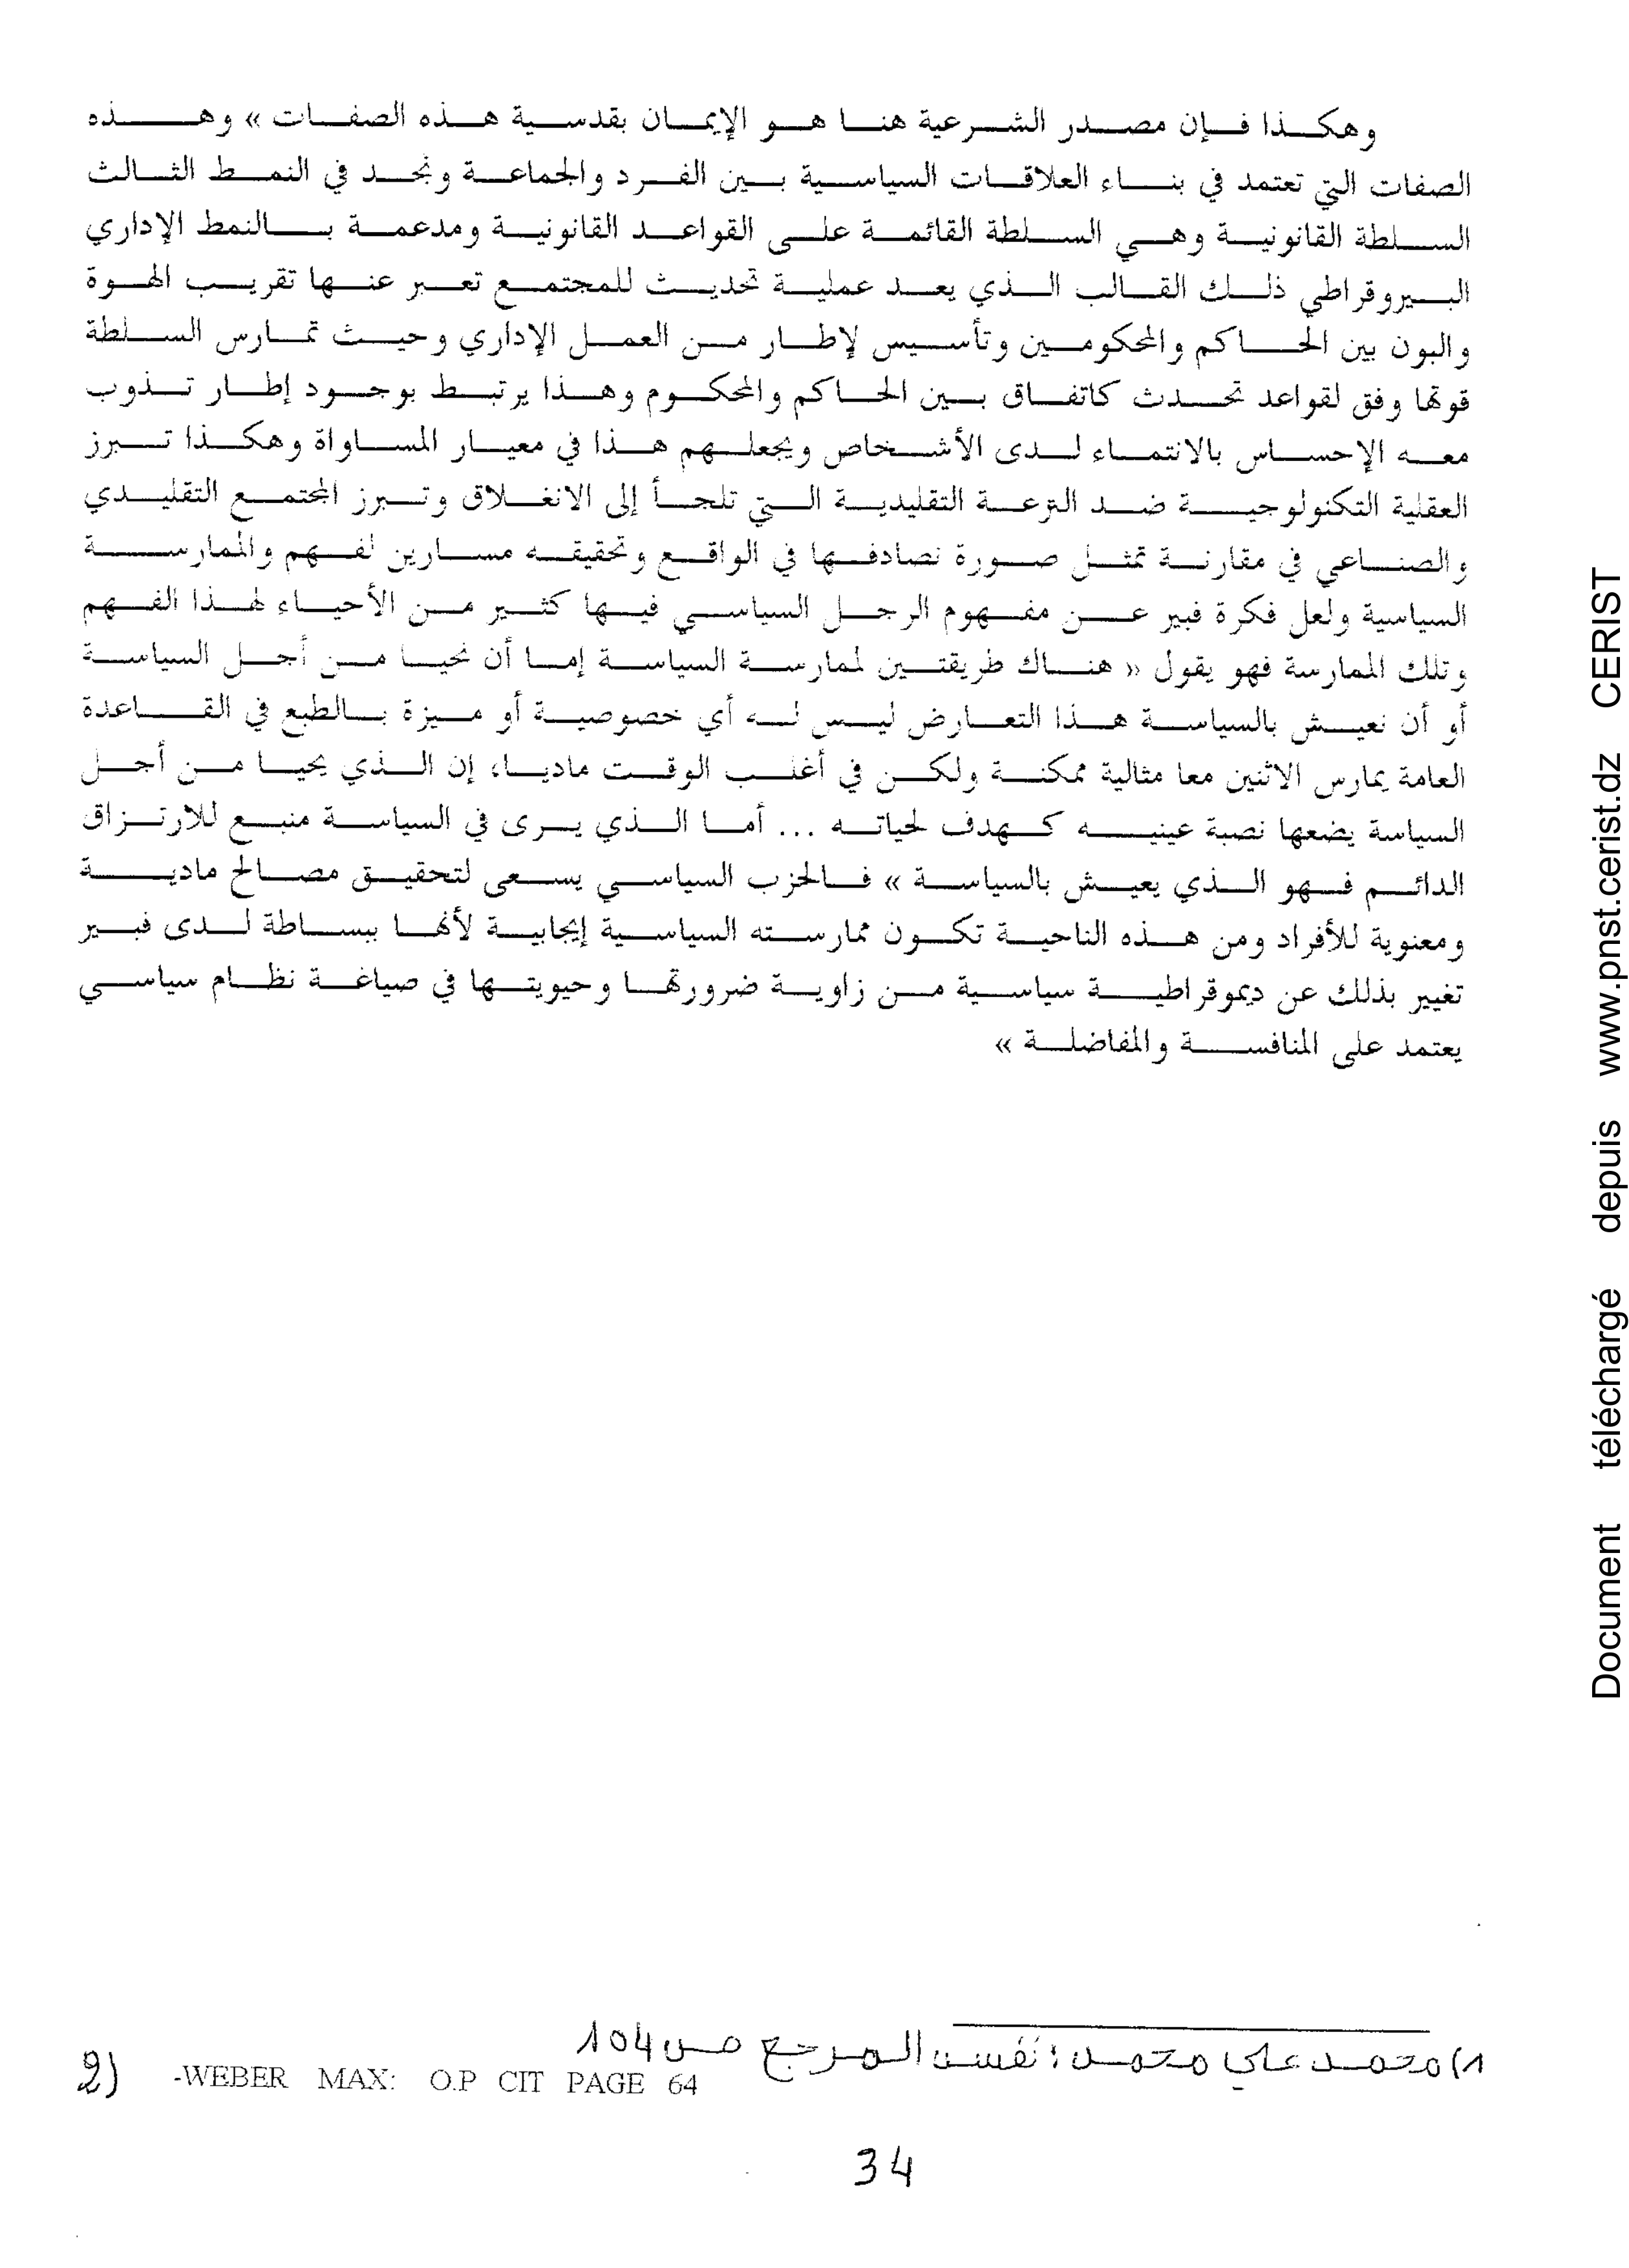 وهكذا فإن مصدر الشرعية هنا هو الإيمان بقدسية هذه الصفات » وهذه
الصفات التي تعتمد في بناء العلاقات السياسية بين الفرد والجماعة ونجد في النمط الثالث
السلطة القانونية وهي السلطة القائمة على القواعد القانونية ومدعمة بالنمط الإداري
البيروقراطي ذلك القالب الذي يعد عملية تحديث للمجتمع تعبر عنها تقريب الهوة
والبون بين الحاكم والمحكومين وتأسيس لإطار من العمل الإداري وحيث تمارس السلطة
قوتها وفق لقواعد تحدث كاتفاق بين الحاكم والمحكوم وهذا يرتبط بوجود إطار تذوب
معه الإحساس بالانتماء لدى الأشخاص ويجعلهم هذا في معيار المساواة وهكذا تبرز
العقلية التكنولوجية ضد النزعة التقليدية التي تلجأ إلى الانغلاق وتبرز المجتمع التقليدي
والصناعي في مقارنة تمثل صورة نصادفها في الواقع وتحقيقه مسارين لفهم والممارسة
السياسية ولعل فكرة فبير عن مفهوم الرجل السياسي فيها كثير من الأحياء لهذا الفهم
وتلك الممارسة فهو يقول « هناك طريقتين لممارسة السياسة إما أن نحيا من أجل السياسة
أو أن نعيش بالسياسة هذا التعارض ليس له أي خصوصية أو ميزة بالطبع في القاعدة
العامة يمارس الاثنين معا مثالية ممكنة ولكن في أغلب الوقت ماديا، إن الذي يحيا من أجل
السياسة يضعها نصبة عينيه كهدف لحياته ... أما الذي يرى في السياسة منبع للارتزاق
الدائم فهو الذي يعيش بالسياسة » فالحزب السياسي يسعى لتحقيق مصالح مادية
ومعنوية للأفراد ومن هذه الناحية تكون ممارسته السياسية إيجابية لأنها ببساطة لدى فبير
تغيير بذلك عن ديموقراطية سياسية من زاوية ضرورتها وحيويتها في صياغة نظام سياسي
يعتمد على المنافسة والمفاضلة »
1) محمد علي محمد : نفس المرجع ص 104
2) -WEBER MAX: O.P CIT PAGE 64
34
Document téléchargé depuis www.pnst.cerist.dz CERIST